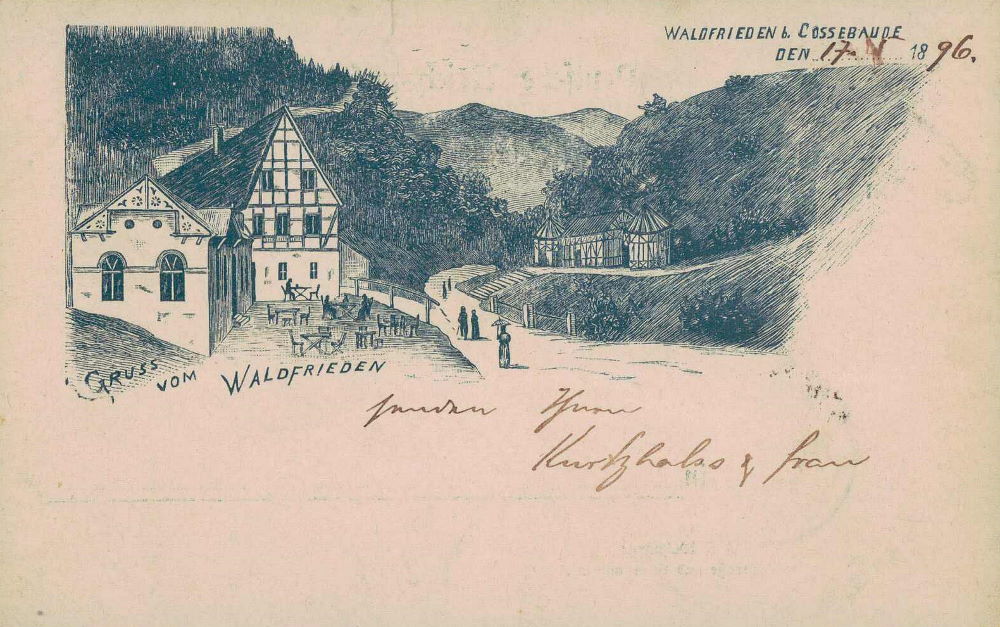 WALDFRIEDEN b. COSSEBAUDE
DEN 17. V 1896.
GRUSS VOM WALDFRIEDEN
senden Ihnen
Kurtzhalss & Frau